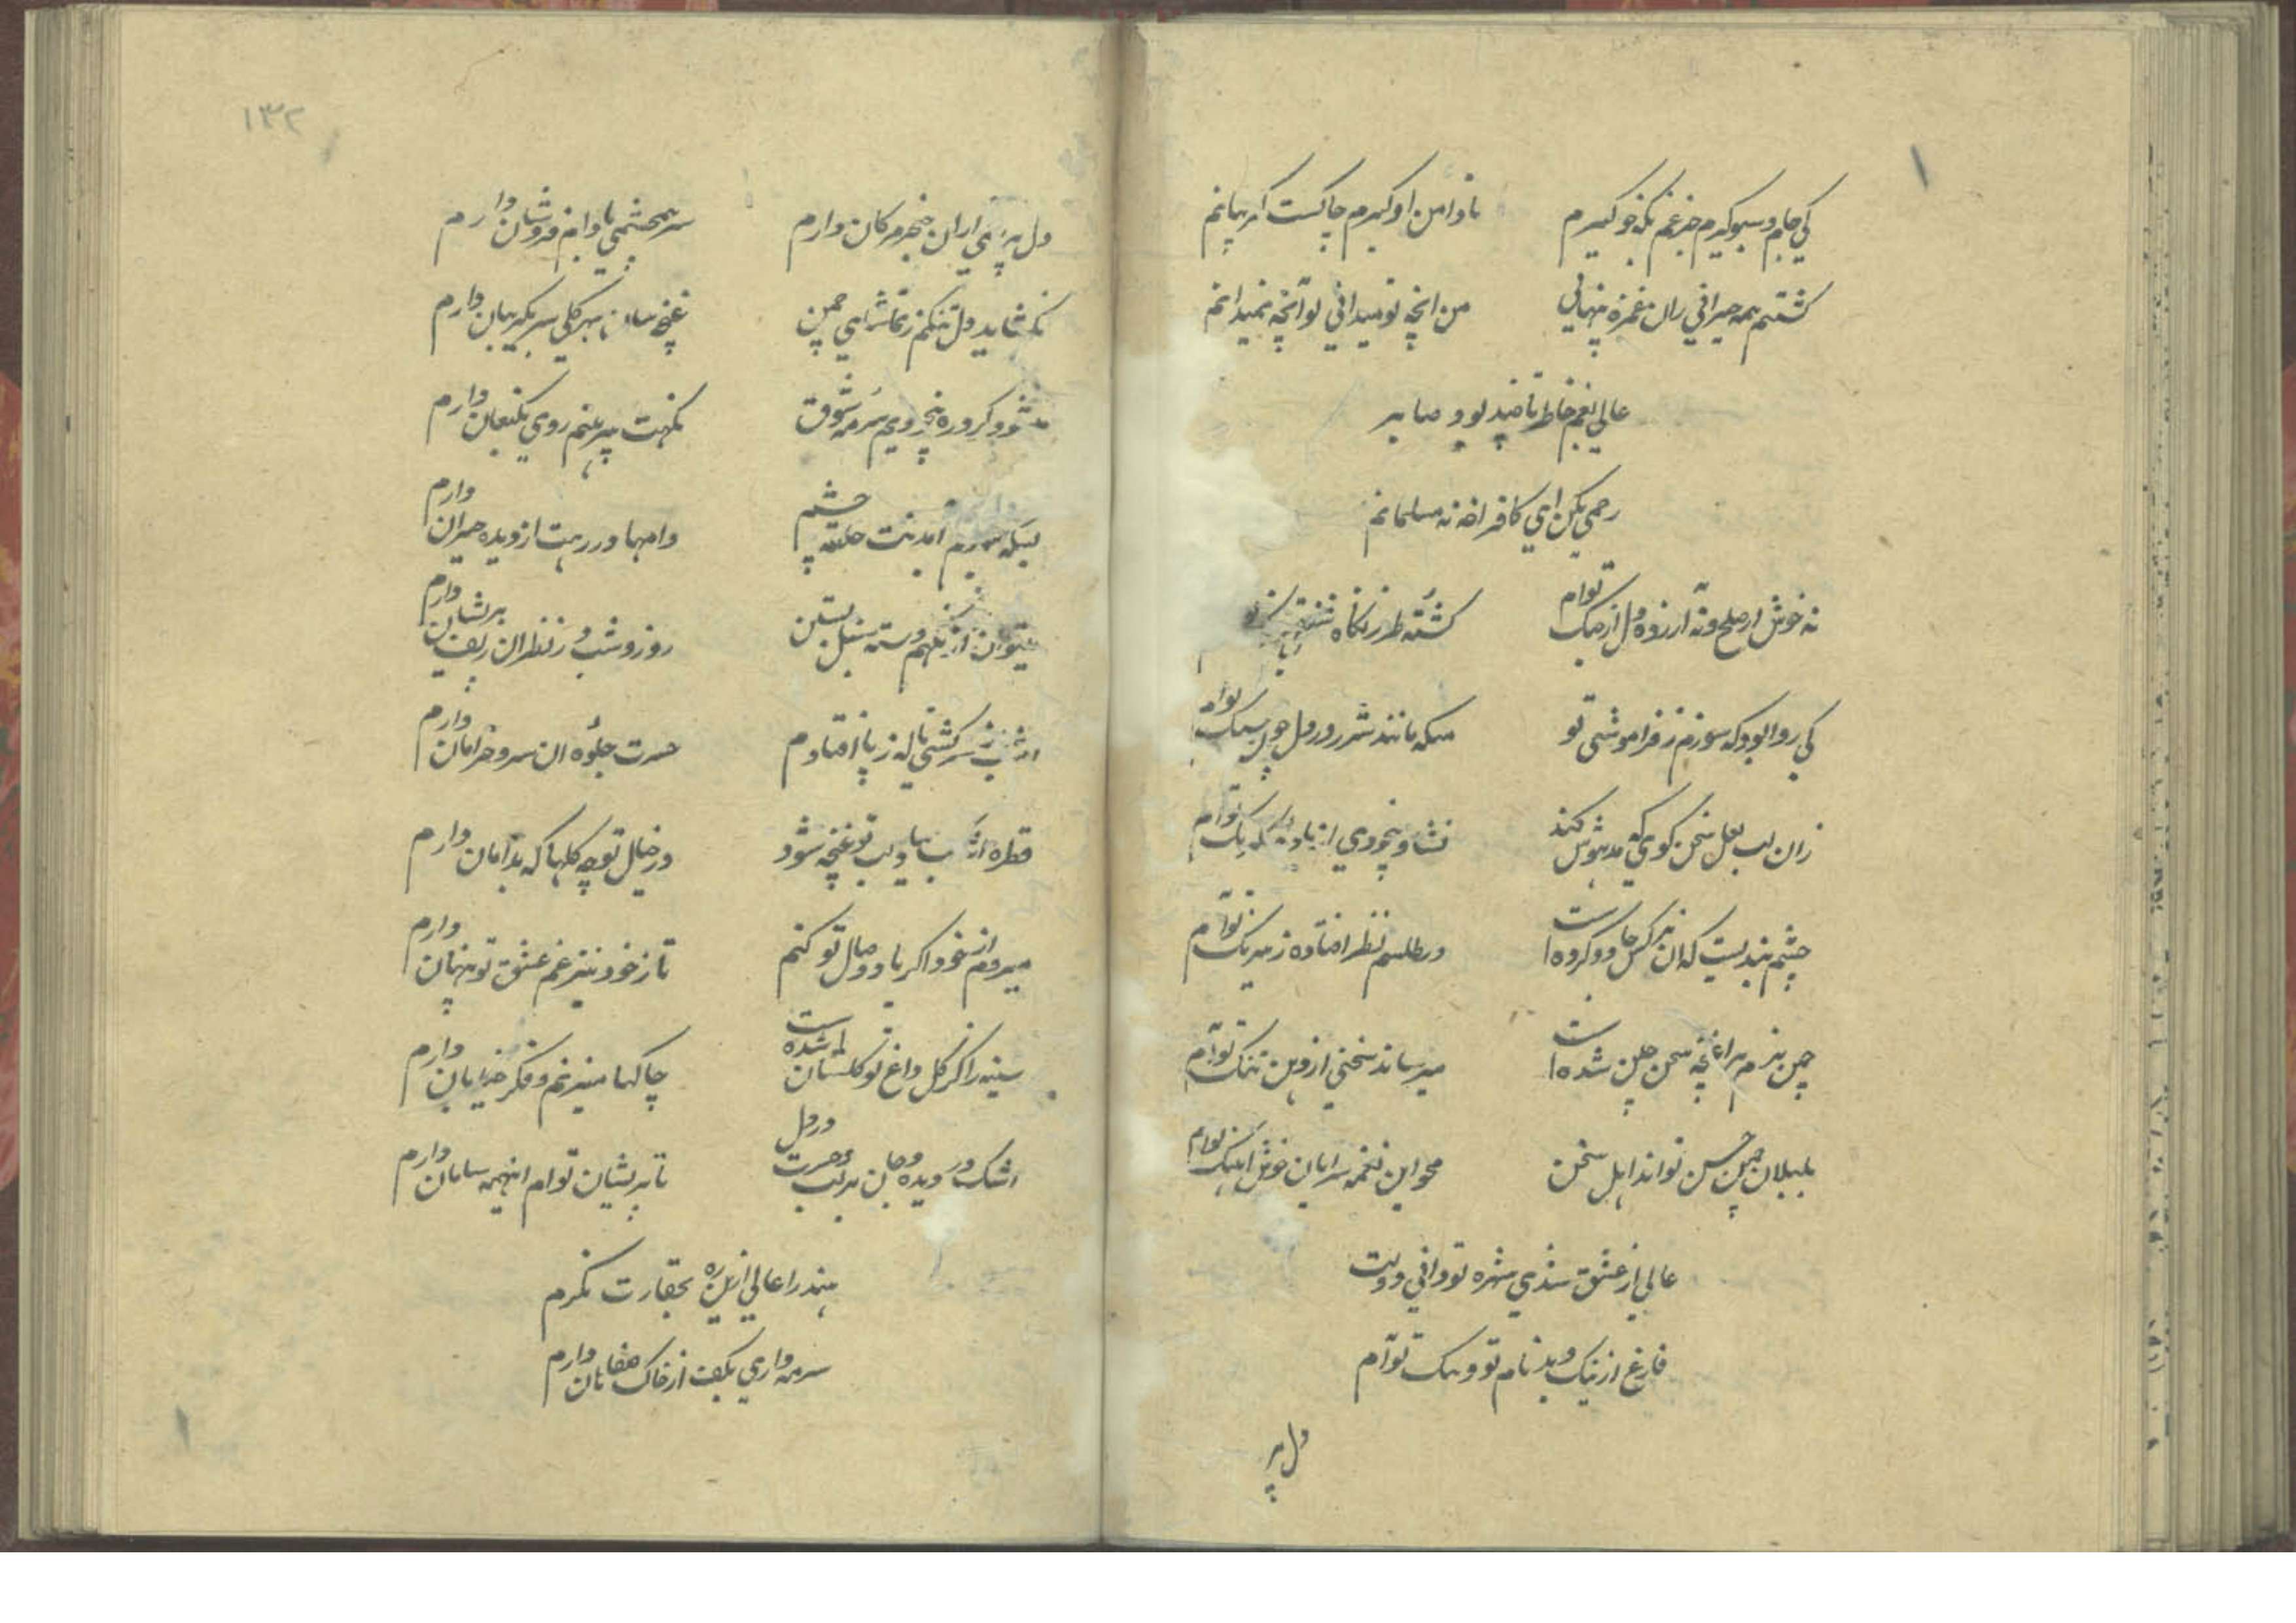 کی جام و سبو گیرم جز غم بکه خو گیرم
تا دامن او گیرم چاکست گریبانم
گشتیم همه حیرانی زان غمزه پنهانی
من آنچه تو میدانی تو آنچه نمیدانم
عالی بغم خاطر تا چند بود صابر
رحمی بکن ای کافر آخر نه مسلمانم
نه خوش از صلح و نه آزرده دل از جنگ توام
کشته طرز نگاه
کی روا بود که سوزم ز فراموشی تو
منکه مانند شرر در دل چون سنگ توام
زان لب لعل سخن گوی که مدهوش کند
نشاء بیخودی از باده گلرنگ توام
چشم بندیست که آن نرگس جادو کرده است
در طلسم نظر افتاده ز نیرنگ توام
چمن بزم مرا غنچه سخن چین شده است
میرساند سخنی از دهن تنگ توام
بلبلان چمن حسن تواند اهل سخن
محو این نغمه سرایان خوش آهنگ توام
عالی از عشق شدی شهره تو دانی و دلت
فارغ از نیک و بد نام تو و ننگ توام
دل پر
۱۳۲
دل پر می ز آن خنجر مژگان دارم
سر همچشمی بادام فروشان دارم
نگشاید دل تنگم ز تماشای چمن
غنچه سان بهر گلی سر بگریبان دارم
میشود گرد ره بیخودیم سرمه شوق
نکهت پیرهنم روی بکنعان دارم
بسکه آمدنت حلقه چشم
دامها در رهت از دیده حیران دارم
میتوان از نگهم دسته سنبل بستن
روز و شب در نظر آن زلف پریشان دارم
سرکشی ناله ز پا افتادم
حسرت جلوه آن سرو خرامان دارم
قطره بیاد لب تو غنچه شود
در خیال تو چه گلها که بدامان دارم
میروم از خود اگر یاد وصال تو کنم
تا ز خود نیز غم عشق تو پنهان دارم
سینه را کز گل داغ تو گلستان شده است
چاکها میزنم و فکر خیابان دارم
اشک در دیده و جان بر لب و حسرت در دل
تا پریشان توام اینهمه سامان دارم
هند را عالی ازین ره بحقارت نگرم
سرمه واری بکف از خاک صفاهان دارم